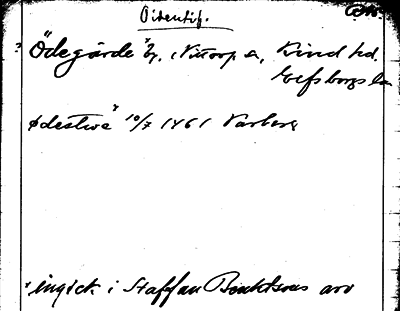 Oidentif.
? Ödegärde ˣ by, i Nittorp sn, Kind hd.
Elfsborgs län
ødestwæ ˣ 10/7 1461 Varberg
ˣ ingick i Staffan Bænktsons arv